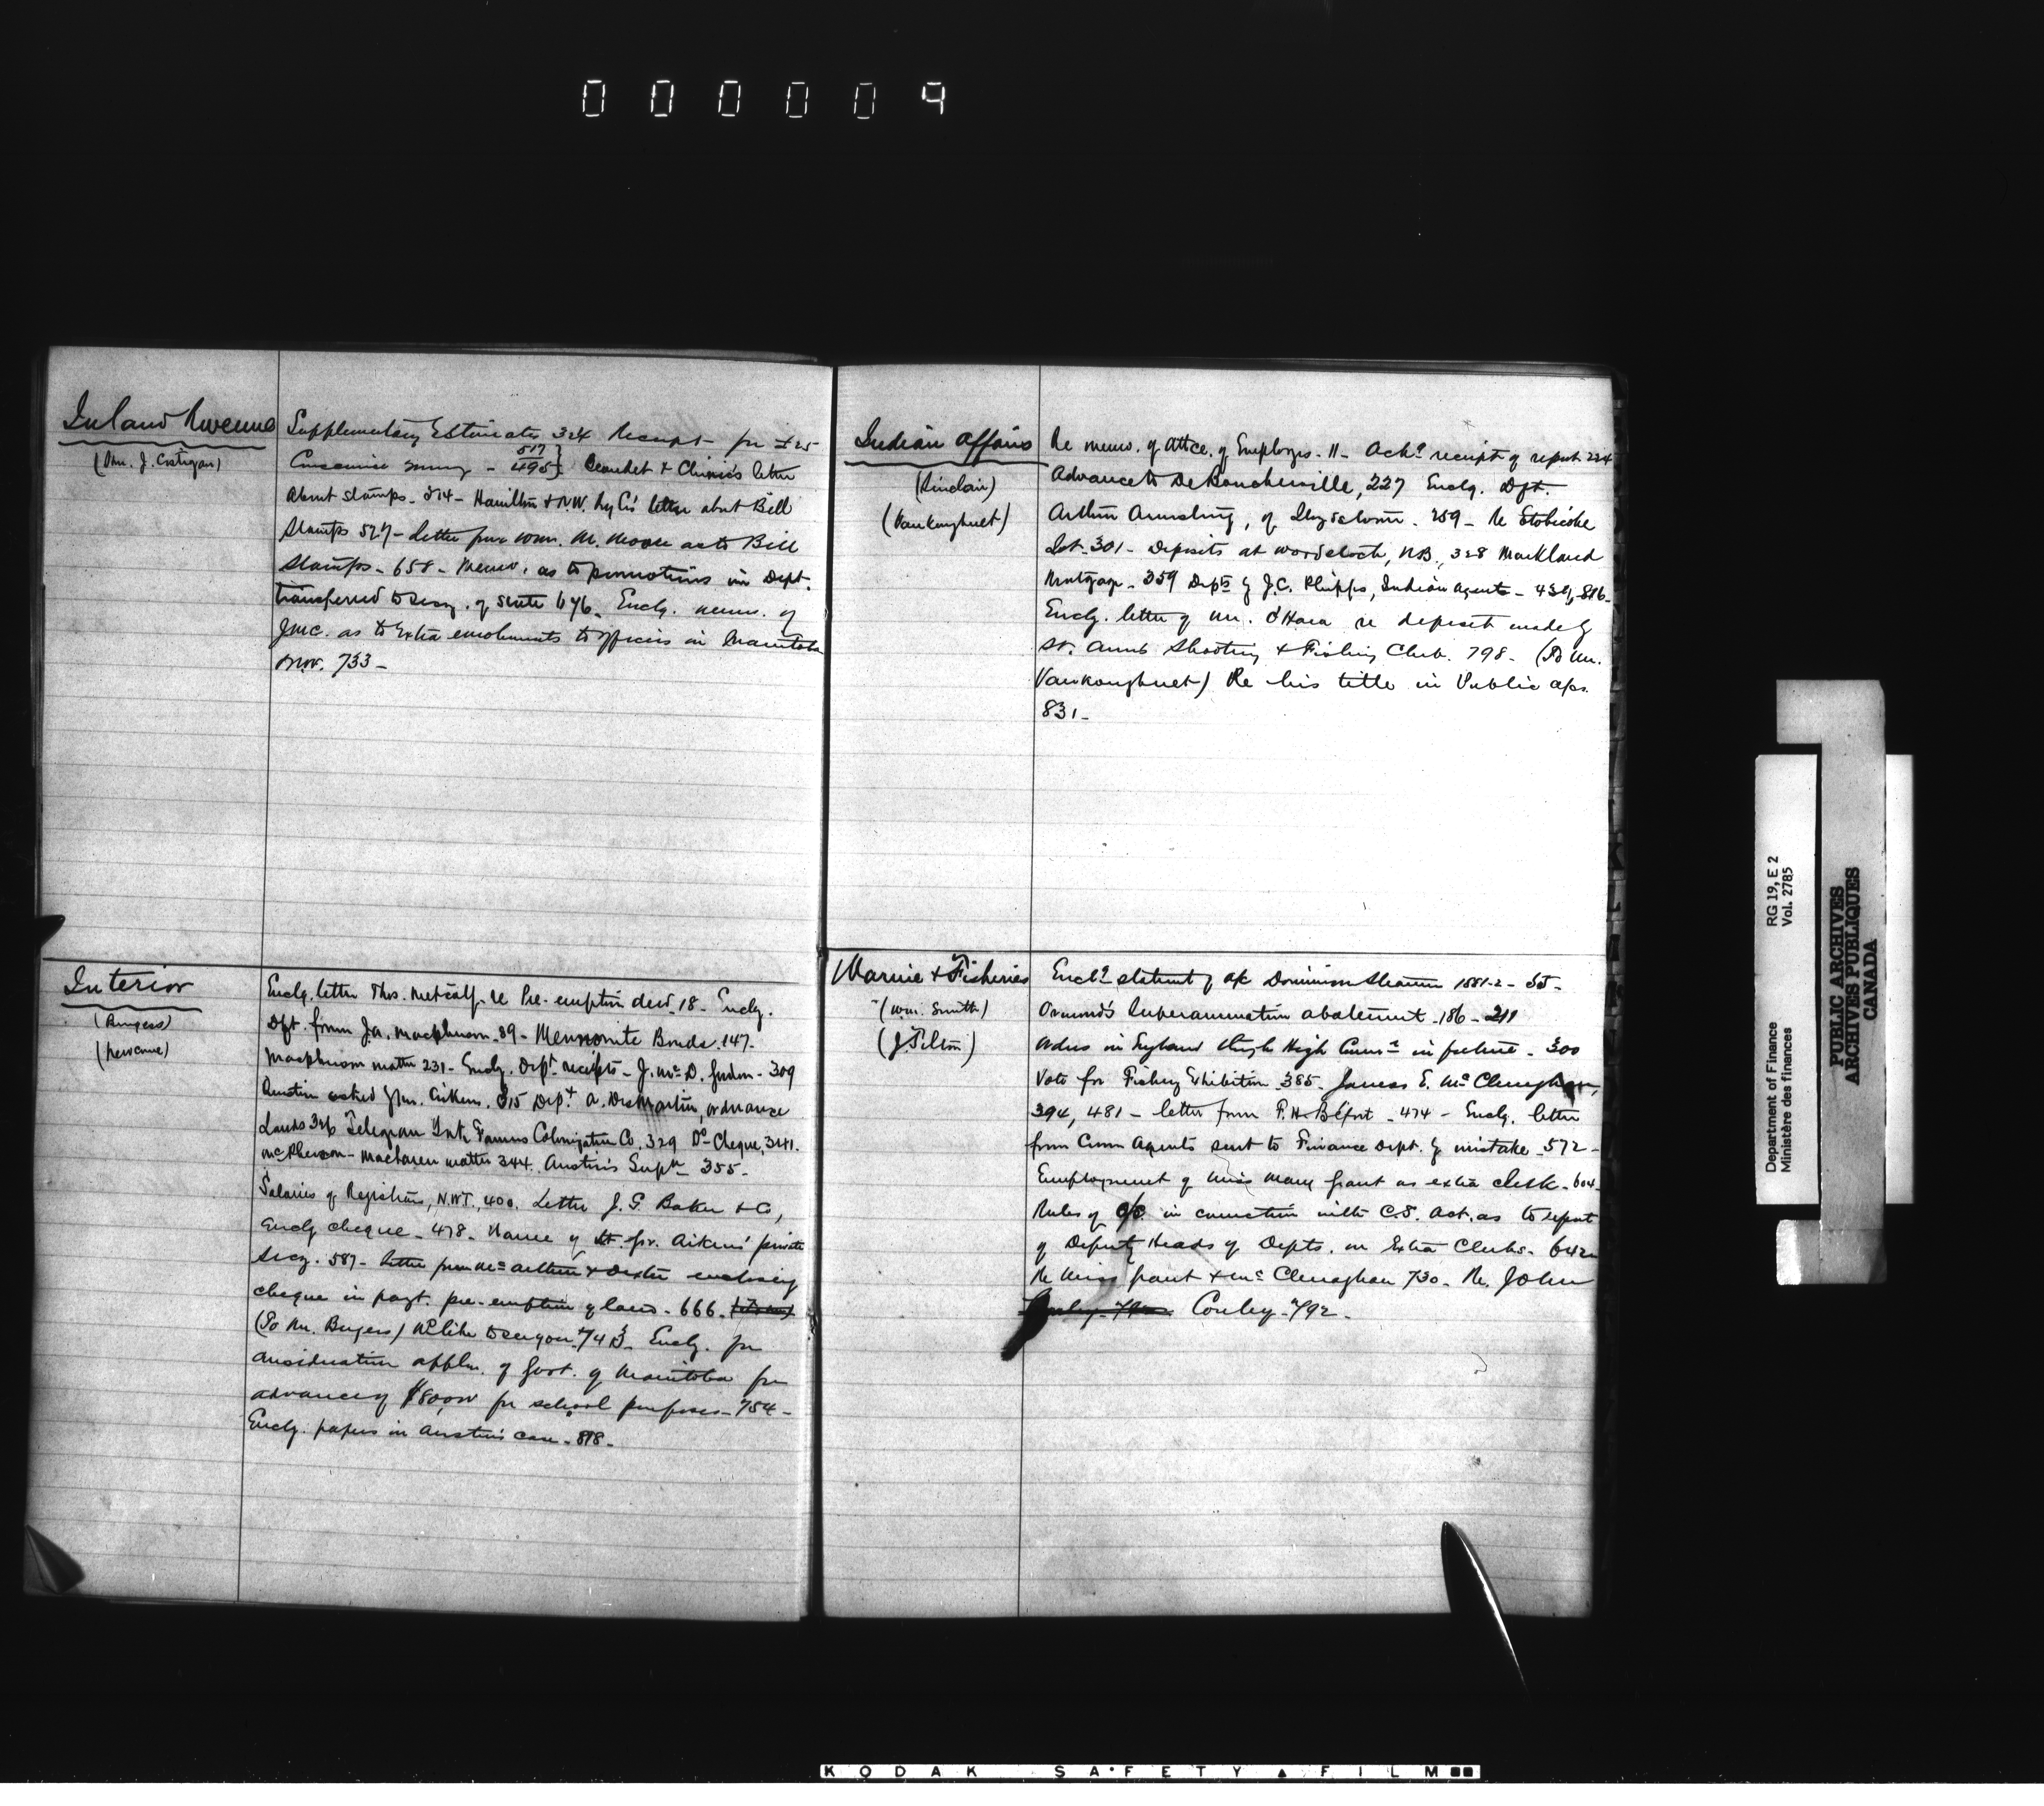 000009
Inland Revenue
(Hon. J. Costigan)
Supplementary Estimates 324 Receipt for £25
Conscience money - 517 495} Beaudet & Chinic's letter
about stamps - 514 - Hamilton & N.W. Ry Co's letter about Bill
Stamps 527 - Letter from Wm. M. Moore as to Bill
Stamps - 658 - Memo. as to promotions in Dept.
transferred to Secy. of State 676. Enclg. memo. of
J.M.C. as to Extra emoluments to officers in Manitoba
733 -
Interior
(Burgess)
Enclg. letter Thos. Metcalf - re Pre-emption 18 - Enclg.
Dft. from 89 - Mennonite Bonds. 147 -
matter 231 - Enclg. Dept. receipts - J. Mc. D. Gordon - 309
315 Dept. a. ordnance
Lands 326 Telegram Colonization Co. 329 Do - Cheque, 341.
McPherson - MacLaren matter 344. Austin's 355 -
Salaries of Registrars, N.W.T., 400. Letter J. G. Baker & Co,
Enclg cheque - 478 - Name of Lt. Gov. Aikens' private
Secy. 587 - Letter from McArthur & Dexter enclosing
cheque in payt. pre-emption of land - 666.
(To Mr. Burgess) like to see you 743 - Enclg. for
consideration appln. of Govt. of Manitoba for
advance of for school purposes - 754 -
Enclg. papers in Austin's case - 818 -
Indian Affairs
(Sinclair)
(Vankoughnet)
Re memo. of attce. of Employes - 11 - Ackg receipt of report 224
Advance to De Boucherville, 227 Enclg. Dft.
Arthur Armstrong, of Lloydtown - 259 - Re Etobicoke
Lot - 301 - Deposits at Woodstock, N.B., 328 Markland
Mortgage - 359 Depts by J.C. Phipps, Indian Agents - 439, 816 -
Enclg. letter of Mr. O'Hara re deposit made by
St. Anns Shooting & Fishing Club. 798 - (To Mr.
Vankoughnet) Re his title in Public a/cs.
831 -
Marine & Fisheries
(Wm. Smith)
(J. Tilton)
Enclg statemt of a/c Dominion Steamers 1881-2 - 55 -
Ormond's Superannuation abatement - 186 - 211
in England through High Commr in future - 300
Vote for Fishery Exhibition 385 - James E. McClenaghan,
394, 481 - letter from 474 - Enclg. letter
from Comn Agents sent to Finance Dept. by mistake - 572 -
Employment of Miss Mary Grant as extra clerk - 604 -
Rules of O/C. in connection with C.S. Act. as to report
of Deputy Heads of Depts. on Extra Clerks - 642 -
Re Miss Grant & McClenaghan 730 - Re. John
Conley - 792 -
Department of Finance
Ministère des finances
RG 19, E 2
Vol. 2785
PUBLIC ARCHIVES
ARCHIVES PUBLIQUES
CANADA
KODAK SAFETY FILM